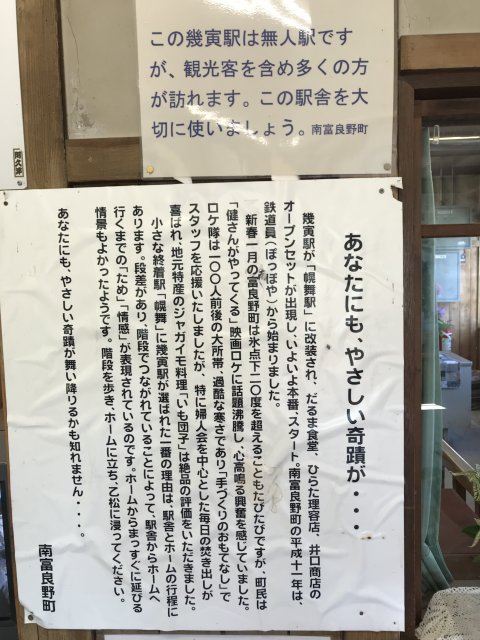 この幾寅駅は無人駅です
が、観光客を含め多くの方
が訪れます。この駅舎を大
切に使いましょう。南富良野町
あなたにも、やさしい奇蹟が・・・
幾寅駅が「幌舞駅」に改装され、だるま食堂、ひらた理容店、井口商店の
オープンセットが出現し、いよいよ本番、スタート。南富良野町の平成十一年は、
鉄道員（ぽっぽや）から始まりました。
新春一月の富良野町は氷点下二〇度を超えることもたびたびですが、町民は
「健さんがやってくる」映画ロケに話題沸騰し、心高鳴る興奮を感じていました。
ロケ隊は一〇〇人前後の大所帯、過酷な寒さであり「手づくりのおもてなし」で
スタッフを応援いたしましたが、特に婦人会を中心とした毎日の焚き出しが
喜ばれ、地元特産のジャガイモ料理「いも団子」は絶品の評価をいただきました。
小さな終着駅「幌舞」に幾寅駅が選ばれた一番の理由は、駅舎とホームの行程に
あります。段差があり、階段でつながれていることによって、駅舎からホームへ
行くまでの「ため」「情感」が表現されているのです。ホームからまっすぐに延びる
情景もよかったようです。階段を歩き、ホームに立ち、乙松に浸ってください。
あなたにも、やさしい奇蹟が舞い降りるかも知れません・・・。
南富良野町